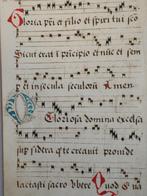 Gloria pri et filio et spiri tui sco
Sicut erat i principio et nūc et sem
et in secula seculorū Amen
O Gloriosa domina excelsa
sup sidera q te creavit provide
lactasti sacro ubere Quod E va